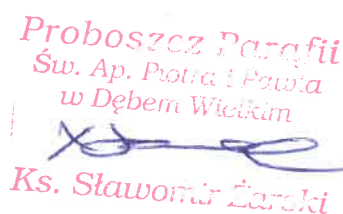 Proboszcz Parafii
Św. Ap. Piotra i Pawła
w Dębem Wielkim
Ks. Sławomir Żarski